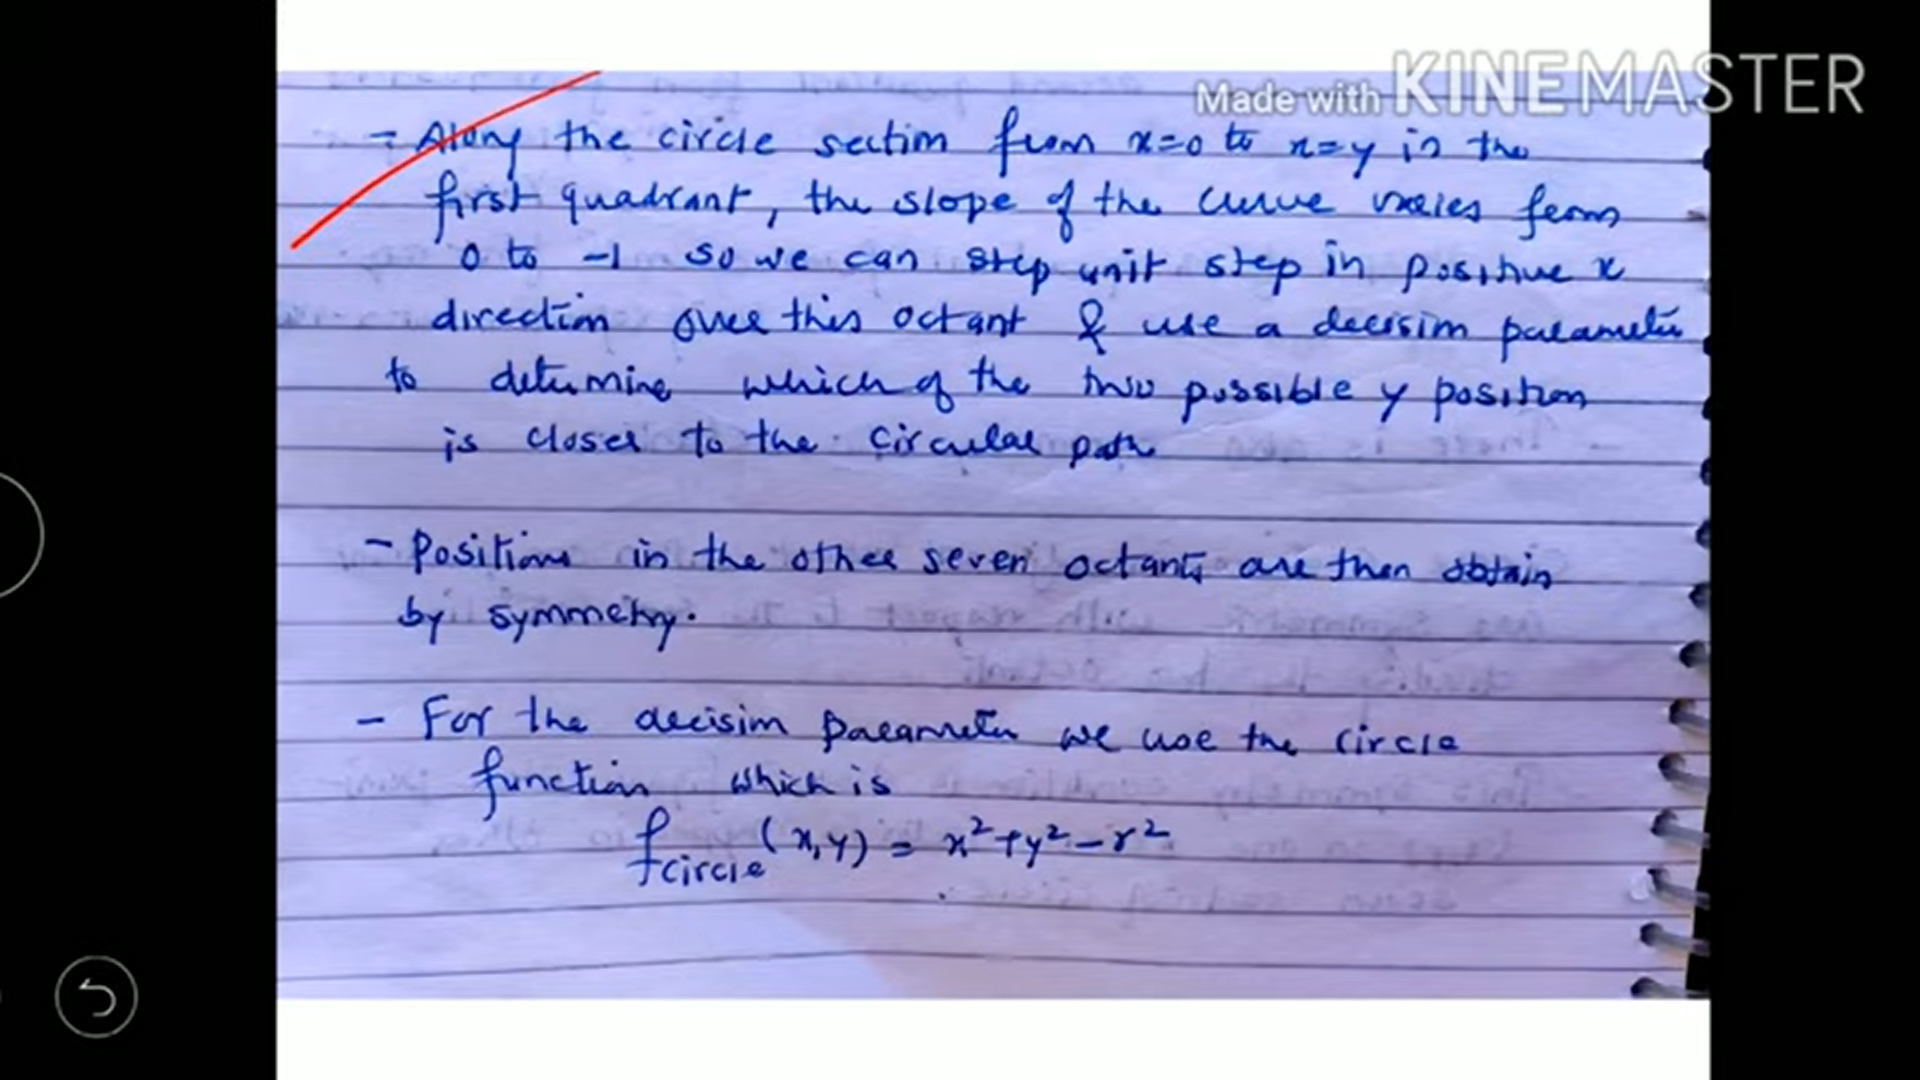 Made with KINEMASTER
- Along the circle section from x=0 to x=y in the
first quadrant, the slope of the curve varies from
0 to -1 so we can step unit step in positive x
direction over this octant & use a decision parameter
to determine which of the two possible y position
is closer to the circular path
- Positions in the other seven octants are then obtain
by symmetry.
- For the decision parameter we use the circle
function which is
f circle (x,y) = x²+y²-r²